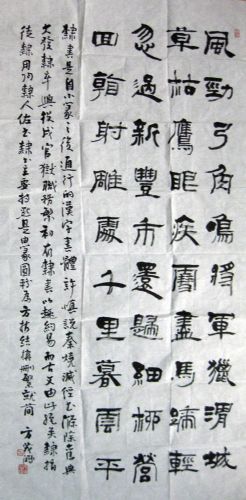 風勁弓角鳴將軍獵渭城
草枯鷹眼疾雪盡馬蹄輕
忽過新豐市還歸細柳營
回看射雕處千里暮雲平
隸書是自小篆之後通行的漢字書體許慎說秦燒滅經書滌除舊典
大發隸卒興役戍官獄職務繁初有隸書以趣約易而古文由此絕矣隸指
徒隸用的隸人佐書隸書主要特點是篆圓形為方折結構刪繁就簡